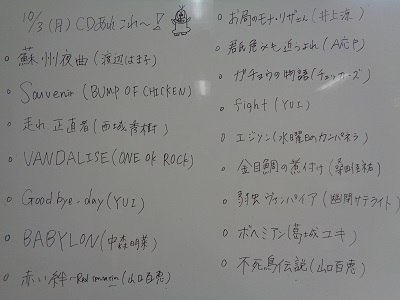 10/3(月) CDあれこれ〜!
蘇州夜曲(渡辺はま子)
Souvenir (BUMP OF CHICKEN)
走れ正直者(西城秀樹)
VANDALISE (ONE OK ROCK)
Good bye-day (YUI)
BABYLON (中森明菜)
赤い絆〜Red sensation(山口百恵)
お局のモナ・リザさん(井上涼)
君子危うも近うよれ(A応P)
ガチョウの物語(チェッカーズ)
fight (YUI)
エジソン(水曜日のカンパネラ)
金目鯛の煮付け(桑田佳祐)
弱虫ヴァンパイア(幽閉サテライト)
ボヘミアン(葛城ユキ)
不死鳥伝説(山口百恵)